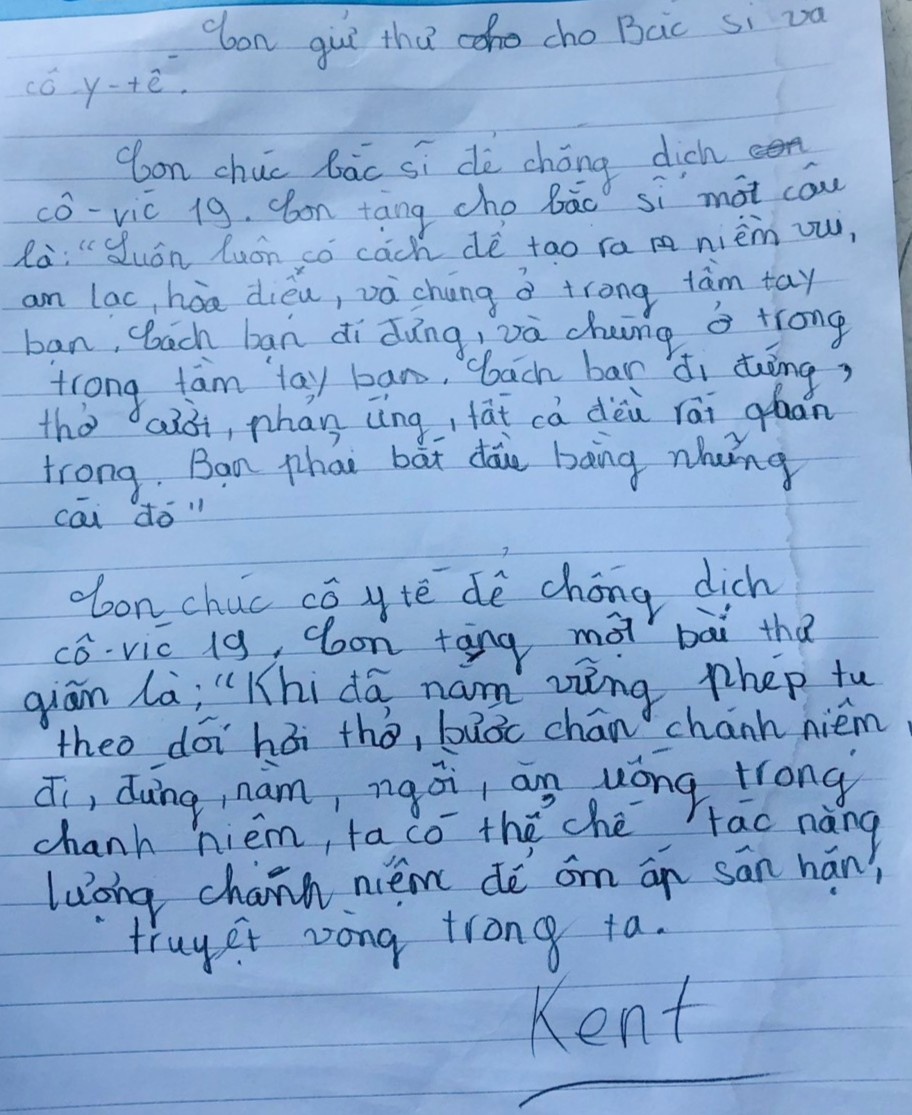 Con gửi thư cho cho Bác sĩ và
cô y-tế.
Con chúc bác sĩ dể chống dịch con
cô-vic 19. Con tặng cho bác sĩ một câu
là: "Luôn luôn có cách dể tạo ra m niềm vui,
an lạc, hòa diểu, và chúng ở trong tầm tay
bạn. Cách bạn đi đứng, và chúng ở trong
trong tầm tay bạn. Cách bạn đi đứng,
thở cười, phản ứng, tất cả đều rất quan
trong. Bạn phải bắt đầu bằng những
cái đó"
Con chúc cô y tế dể chống dịch
cô-vic 19, Con tặng một bài thơ
giãn là: "Khi đã nắm vững phép tu
theo dõi hơi thở, bước chân chánh niêm,
đi, đứng, nằm, ngồi, ăn uống trong
chanh niêm, ta có thể chế tác năng
lượng chánh niệm dể ôm ấp sân hận,
truyệt vòng trong ta.
Kent